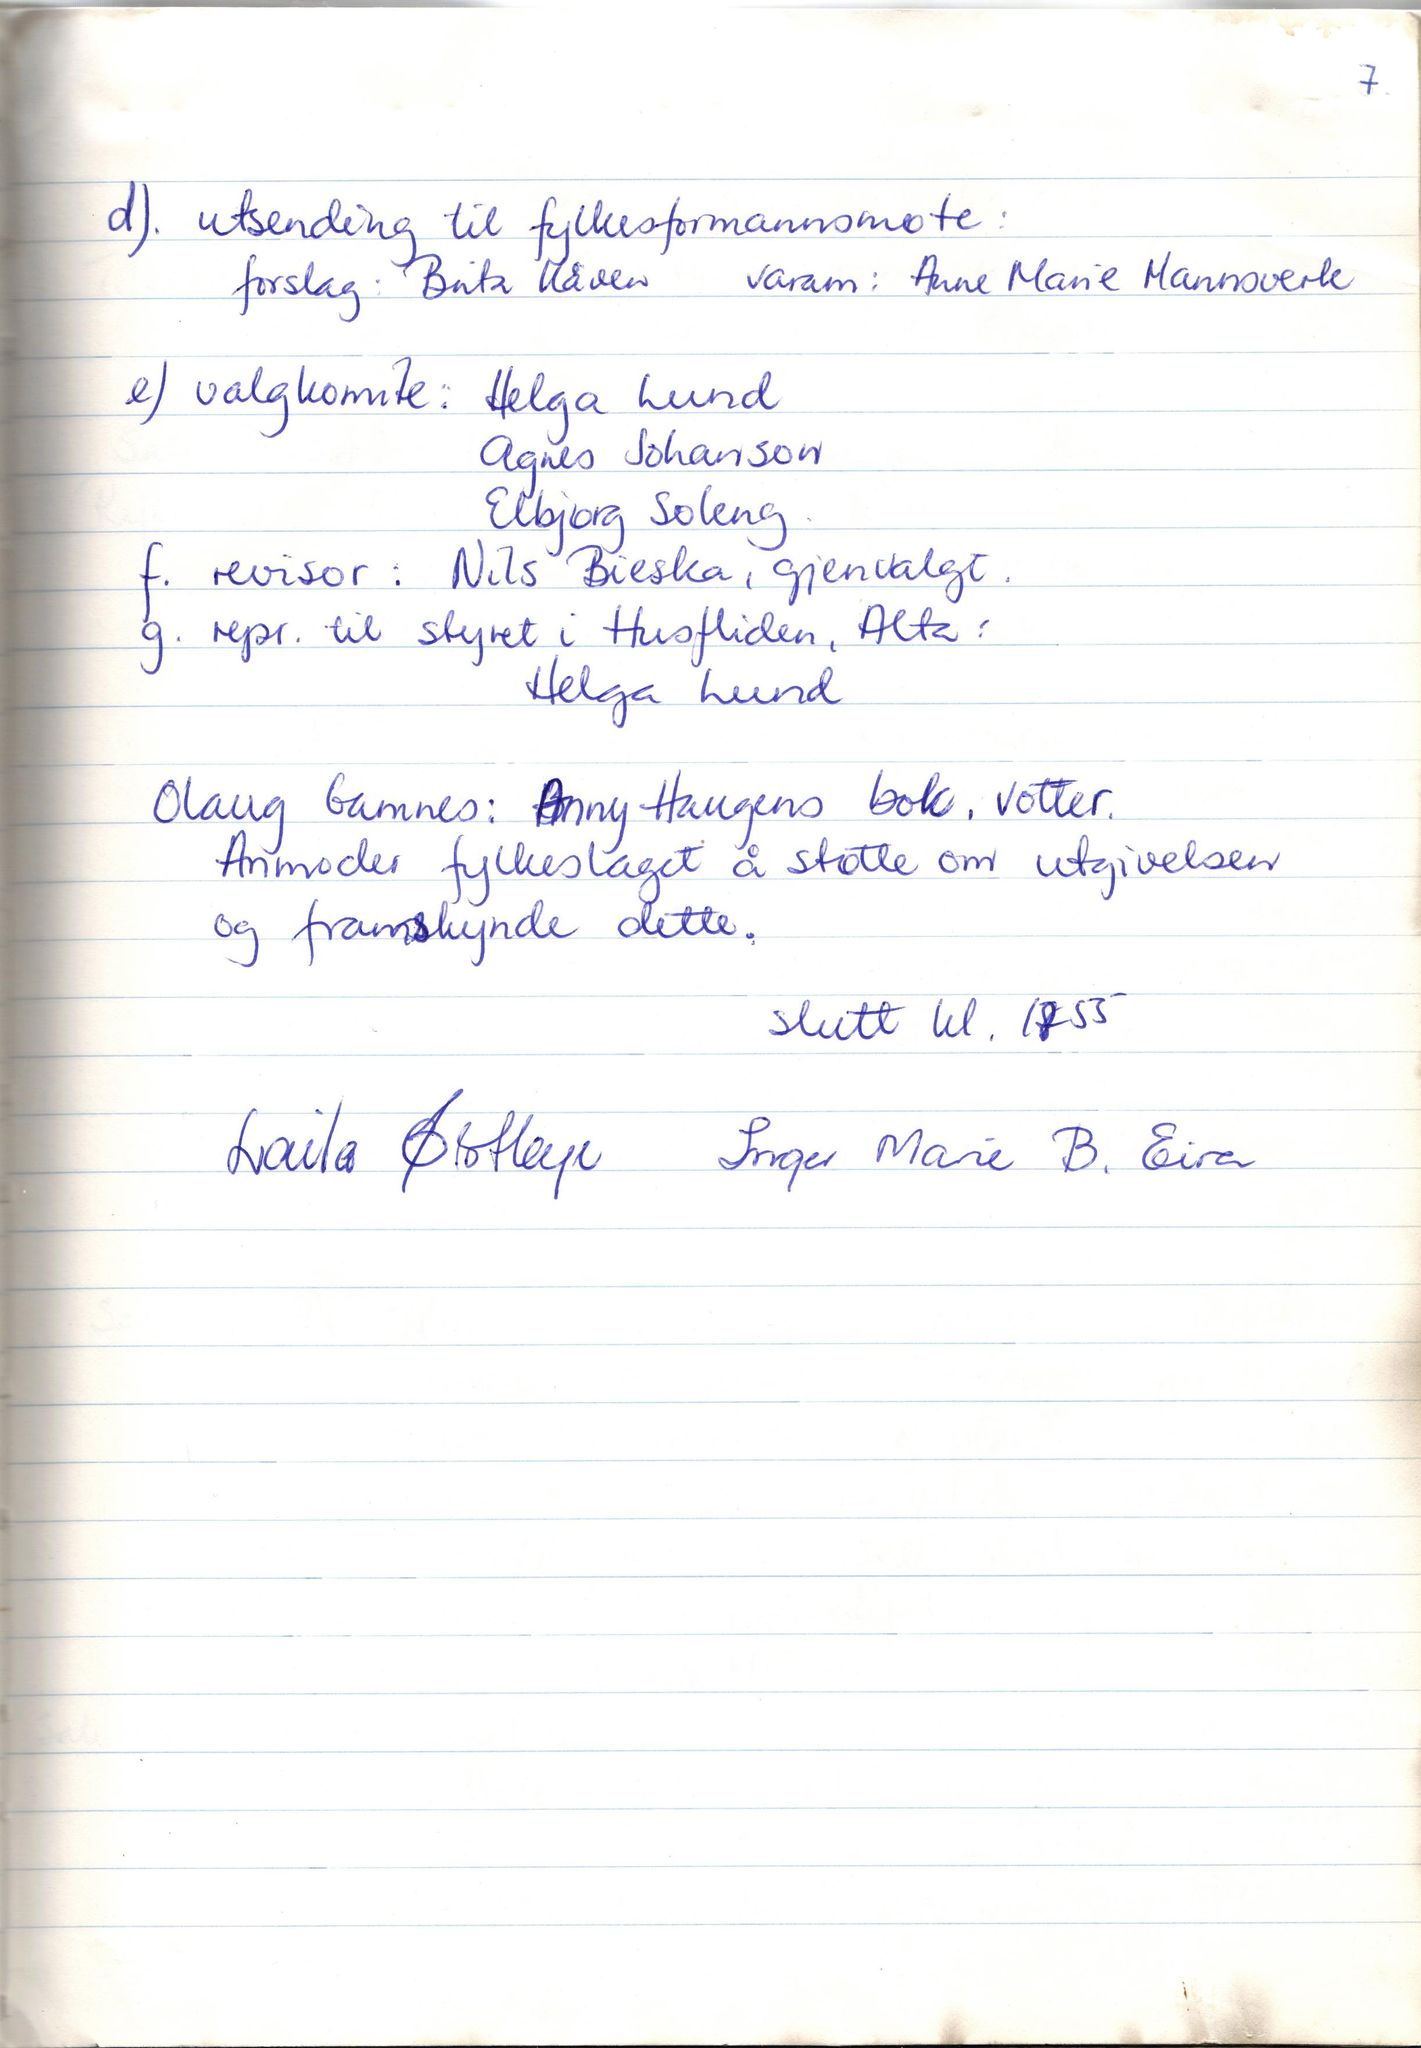 7.
d). utsending til fylkesformannsmøte:
forslag: Brita Kåven varam: Anne Marie Mannsverk
e) valgkomite: Helga Lund
Agnes Johanson
Elbjørg Soleng.
f. revisor: Nils Bieska, gjenvalgt.
g. repr. til styret i Husfliden, Alta:
Helga Lund
Olaug Gamnes: Anny Haugens bok, votter.
Anmoder fylkeslaget å støtte om utgivelsen
og framskynde dette.
slutt kl. 1755
Laila Inger Marie B. Eira